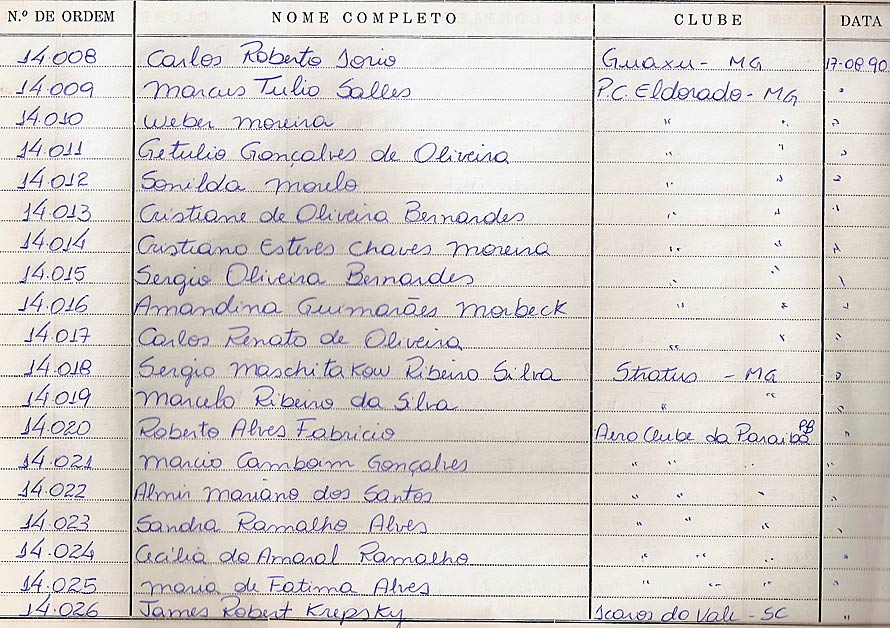 N.º DE ORDEM NOME COMPLETO CLUBE DATA
14.008 Carlos Roberto Iorio Guaxu - MG 17-08-90
14.009 Marcus Tulio Salles P.C. Eldorado - MG "
14.010 Weber Moreira " " "
14.011 Getulio Gonçalves de Oliveira " " "
14.012 Sonilda " " "
14.013 Cristiane de Oliveira Bernardes " " "
14.014 Cristiano Esteves Chaves Moreira " " "
14.015 Sergio Oliveira Bernardes " " "
14.016 Amandina Guimarães Morbeck " " "
14.017 Carlos Renato de Oliveira " " "
14.018 Sergio Maschitakow Ribeiro Silva Stratus - MG "
14.019 Marcelo Ribeiro da Silva " " "
14.020 Roberto Alves Fabricio Aero Clube da Paraiba PB "
14.021 Marcio Camboim Gonçalves " " " "
14.022 Almir Mariano dos Santos " " " "
14.023 Sandra Ramalho Alves " " " "
14.024 Cecilia do Amaral Ramalho " " " "
14.025 Maria de Fatima Alves " " " "
14.026 James Robert Krepsky Icaros do Vale - SC "